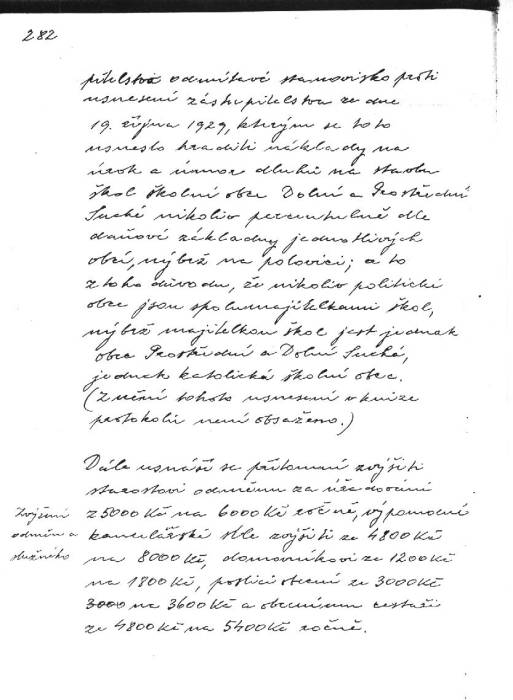 282
pitelstva odmítavé stanovisko proti
usnesení zastupitelstva ze dne
19. října 1929, kterým se toto
usneslo hraditi náklady na
úrok a úmor dluhů na stavbu
škol školní obce Dolní a Prostřední
Suché nikoliv percentuelně dle
daňové základny jednotlivých
obcí, nýbrž na polovici; a to
z toho důvodu, že nikoliv politické
obce jsou spolumajitelkami škol,
nýbrž majitelkou škol jest jednak
obec Prostřední a Dolní Suchá,
jednak katolická školní obec.
(Znění tohoto usnesení v knize
protokolů není obsaženo.)
Dále usnáší se přítomní zvýšiti
starostovi odměnu za úřadování
Zvýšení
odměn a
služného
z 5000 Kč na 6000 Kč ročně, výpomocné
kancelářské síle zvýšiti ze 4800 Kč
na 8000 Kč, domovníkovi ze 1200 Kč
na 1800 Kč, policii obecní ze 3000 Kč
3000 na 3600 Kč a obecnímu cestáři
ze 4800 Kč na 5400 Kč ročně.